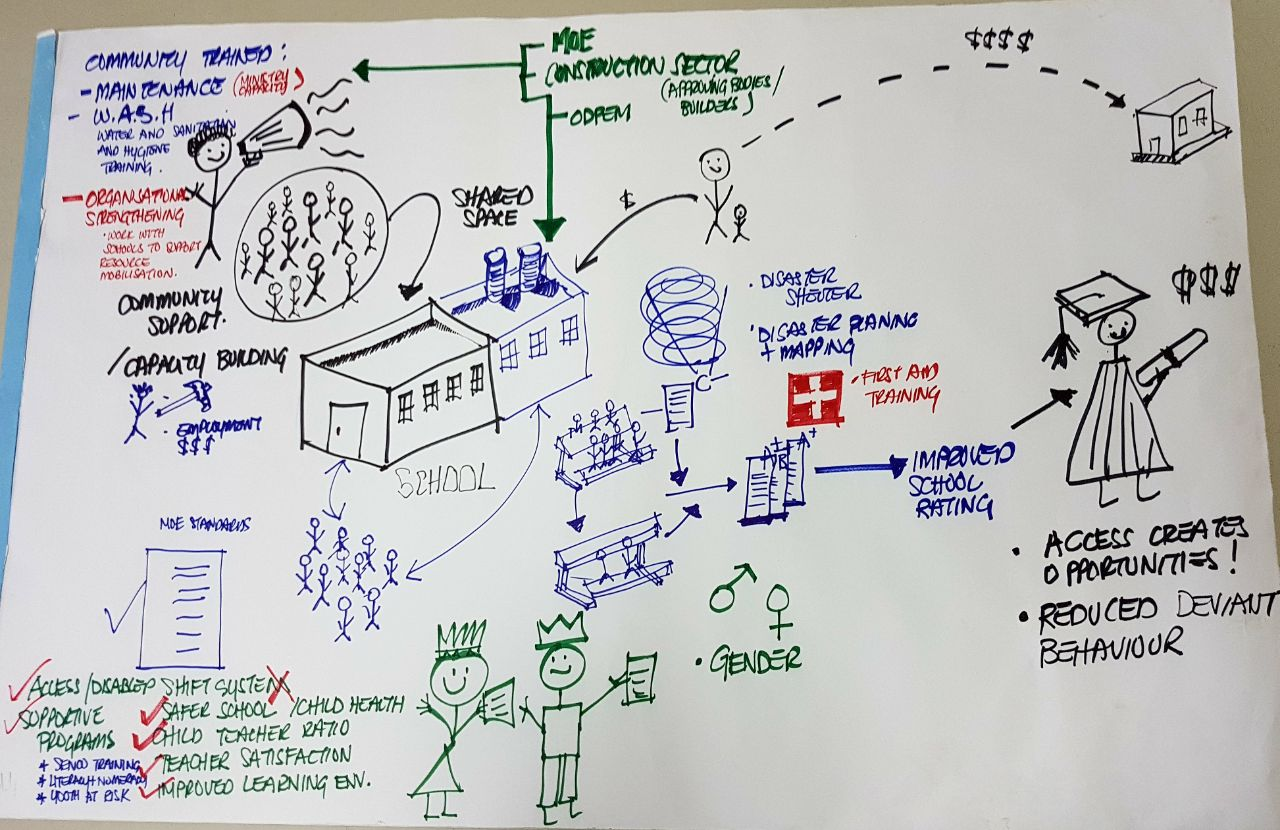 COMMUNITY TRAINED:
- MAINTENANCE (MINISTRY CAPACITY)
- W.A.S.H
WATER AND SANITATION
AND HYGIENE
TRAINING.
- ORGANISATIONAL
STRENGTHENING
• WORK WITH
SCHOOLS TO SUPPORT
RESOURCE
MOBILISATION.
COMMUNITY
SUPPORT.
/CAPACITY BUILDING
• EMPLOYMENT
$$$
MOE
CONSTRUCTION SECTOR
(APPROVING BODIES/
BUILDERS)
- ODPEM
$$$$
SHARED
SPACE
$
SCHOOL
• DISASTER
SHELTER
• DISASTER PLANING
+ MAPPING
• FIRST AND
TRAINING
C-
A+
A+
IMPROVED
SCHOOL
RATING
$$$
• ACCESS CREATES
OPPORTUNITIES!
• REDUCED DEVIANT
BEHAVIOUR
♂ ♀
• GENDER
MOE STANDARDS
ACCESS/DISABLED SHIFT SYSTEM
SUPPORTIVE
PROGRAMS
* SENCO TRAINING
* LITERACY + NUMERACY
* YOUTH AT RISK
SAFER SCHOOL /CHILD HEALTH
CHILD TEACHER RATIO
TEACHER SATISFACTION
IMPROVED LEARNING ENV.